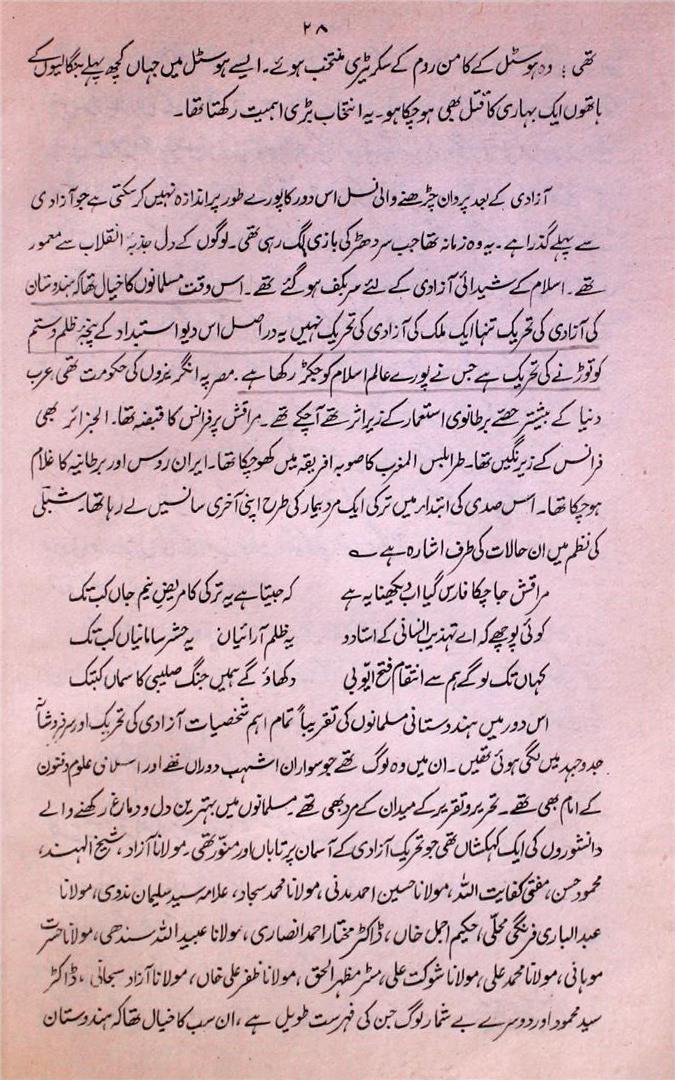 ۲۸
تھی؛ وہ ہوسٹل کے کامن روم کے سکریٹری منتخب ہوئے۔ ایسے ہوسٹل میں جہاں کچھ پہلے بنگالیوں کے
ہاتھوں ایک بہاری کا قتل بھی ہو چکا ہو۔ یہ انتخاب بڑی اہمیت رکھتا تھا۔
آزادی کے بعد پروان چڑھنے والی نسل اس دور کا پورے طور پر اندازہ نہیں کر سکتی ہے جو آزادی
سے پہلے گذرا ہے۔ یہ وہ زمانہ تھا جب سر دھڑ کی بازی لگ رہی تھی۔ لوگوں کے دل جذبۂ انقلاب سے معمور
تھے۔ اسلام کے شیدائی آزادی کے لئے سربکف ہو گئے تھے۔ اس وقت مسلمانوں کا خیال تھا کہ ہندوستان
کی آزادی کی تحریک تنہا ایک ملک کی آزادی کی تحریک نہیں یہ دراصل اس دیو استبداد کے پنجۂ ظلم و ستم
کو توڑنے کی تحریک ہے جس نے پورے عالم اسلام کو جکڑ رکھا ہے۔ مصر پہ انگریزوں کی حکومت تھی عرب
دنیا کے بیشتر حصے برطانوی استعمار کے زیر اثر تھے آچکے تھے۔ مراقش پر فرانس کا قبضہ تھا۔ الجزائر بھی
فرانس کے زیر نگیں تھا۔ طرابلس المغرب کا صوبہ افریقہ میں کھو چکا تھا۔ ایران روس اور برطانیہ کا غلام
ہو چکا تھا۔ اس صدی کی ابتدار میں ترکی ایک مرد بیمار کی طرح اپنی آخری سانسیں لے رہا تھا۔ شبلی
کی نظم میں ان حالات کی طرف اشارہ ہے ؎
مراقش جا چکا فارس گیا اب دیکھنا یہ ہے کہ جیتا ہے یہ ترکی کا مریض نیم جاں کب تک
کوئی پوچھے کہ اے تہذیب انسانی کے استادو یہ ظلم آرائیاں یہ حشر سامانیاں کب تک
کہاں تک لوگے ہم سے انتقام فتح ایوبی دکھاؤ گے ہمیں جنگ صلیبی کا سماں کبتک
اس دور میں ہندوستانی مسلمانوں کی تقریباً تمام اہم شخصیات آزادی کی تحریک اور سرفروشانہ
جدوجہد میں لگی ہوئی تھیں۔ ان میں وہ لوگ تھے جو سواران اشہب دوراں تھے اور اسلامی علوم و فنون
کے امام بھی تھے۔ تحریر و تقریر کے میدان کے مرد بھی تھے۔ مسلمانوں میں بہترین دل و دماغ رکھنے والے
دانشوروں کی ایک کہکشاں تھی جو تحریک آزادی کے آسمان پر تاباں اور منور تھی۔ مولانا آزاد، شیخ الہند،
محمود حسن، مفتی کفایت اللہ، مولانا حسین احمد مدنی، مولانا محمد سجاد، علامہ سید سلیمان ندوی، مولانا
عبد الباری فرنگی محلی، حکیم اجمل خاں، ڈاکٹر مختار احمد انصاری، مولانا عبید اللہ سندھی، مولانا حسرت
موہانی، مولانا محمد علی، مولانا شوکت علی، مسٹر مظہر الحق، مولانا ظفر علی خاں، مولانا آزاد سبحانی، ڈاکٹر
سید محمود اور دوسرے بے شمار لوگ جن کی فہرست طویل ہے، ان سب کا خیال تھا کہ ہندوستان